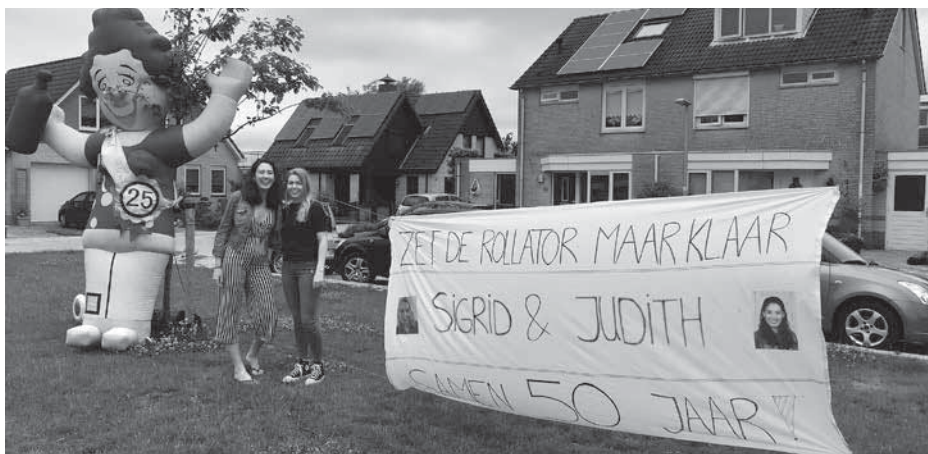 25
ZET DE ROLLATOR MAAR KLAAR
SIGRID & JUDITH
SAMEN 50 JAAR!!!